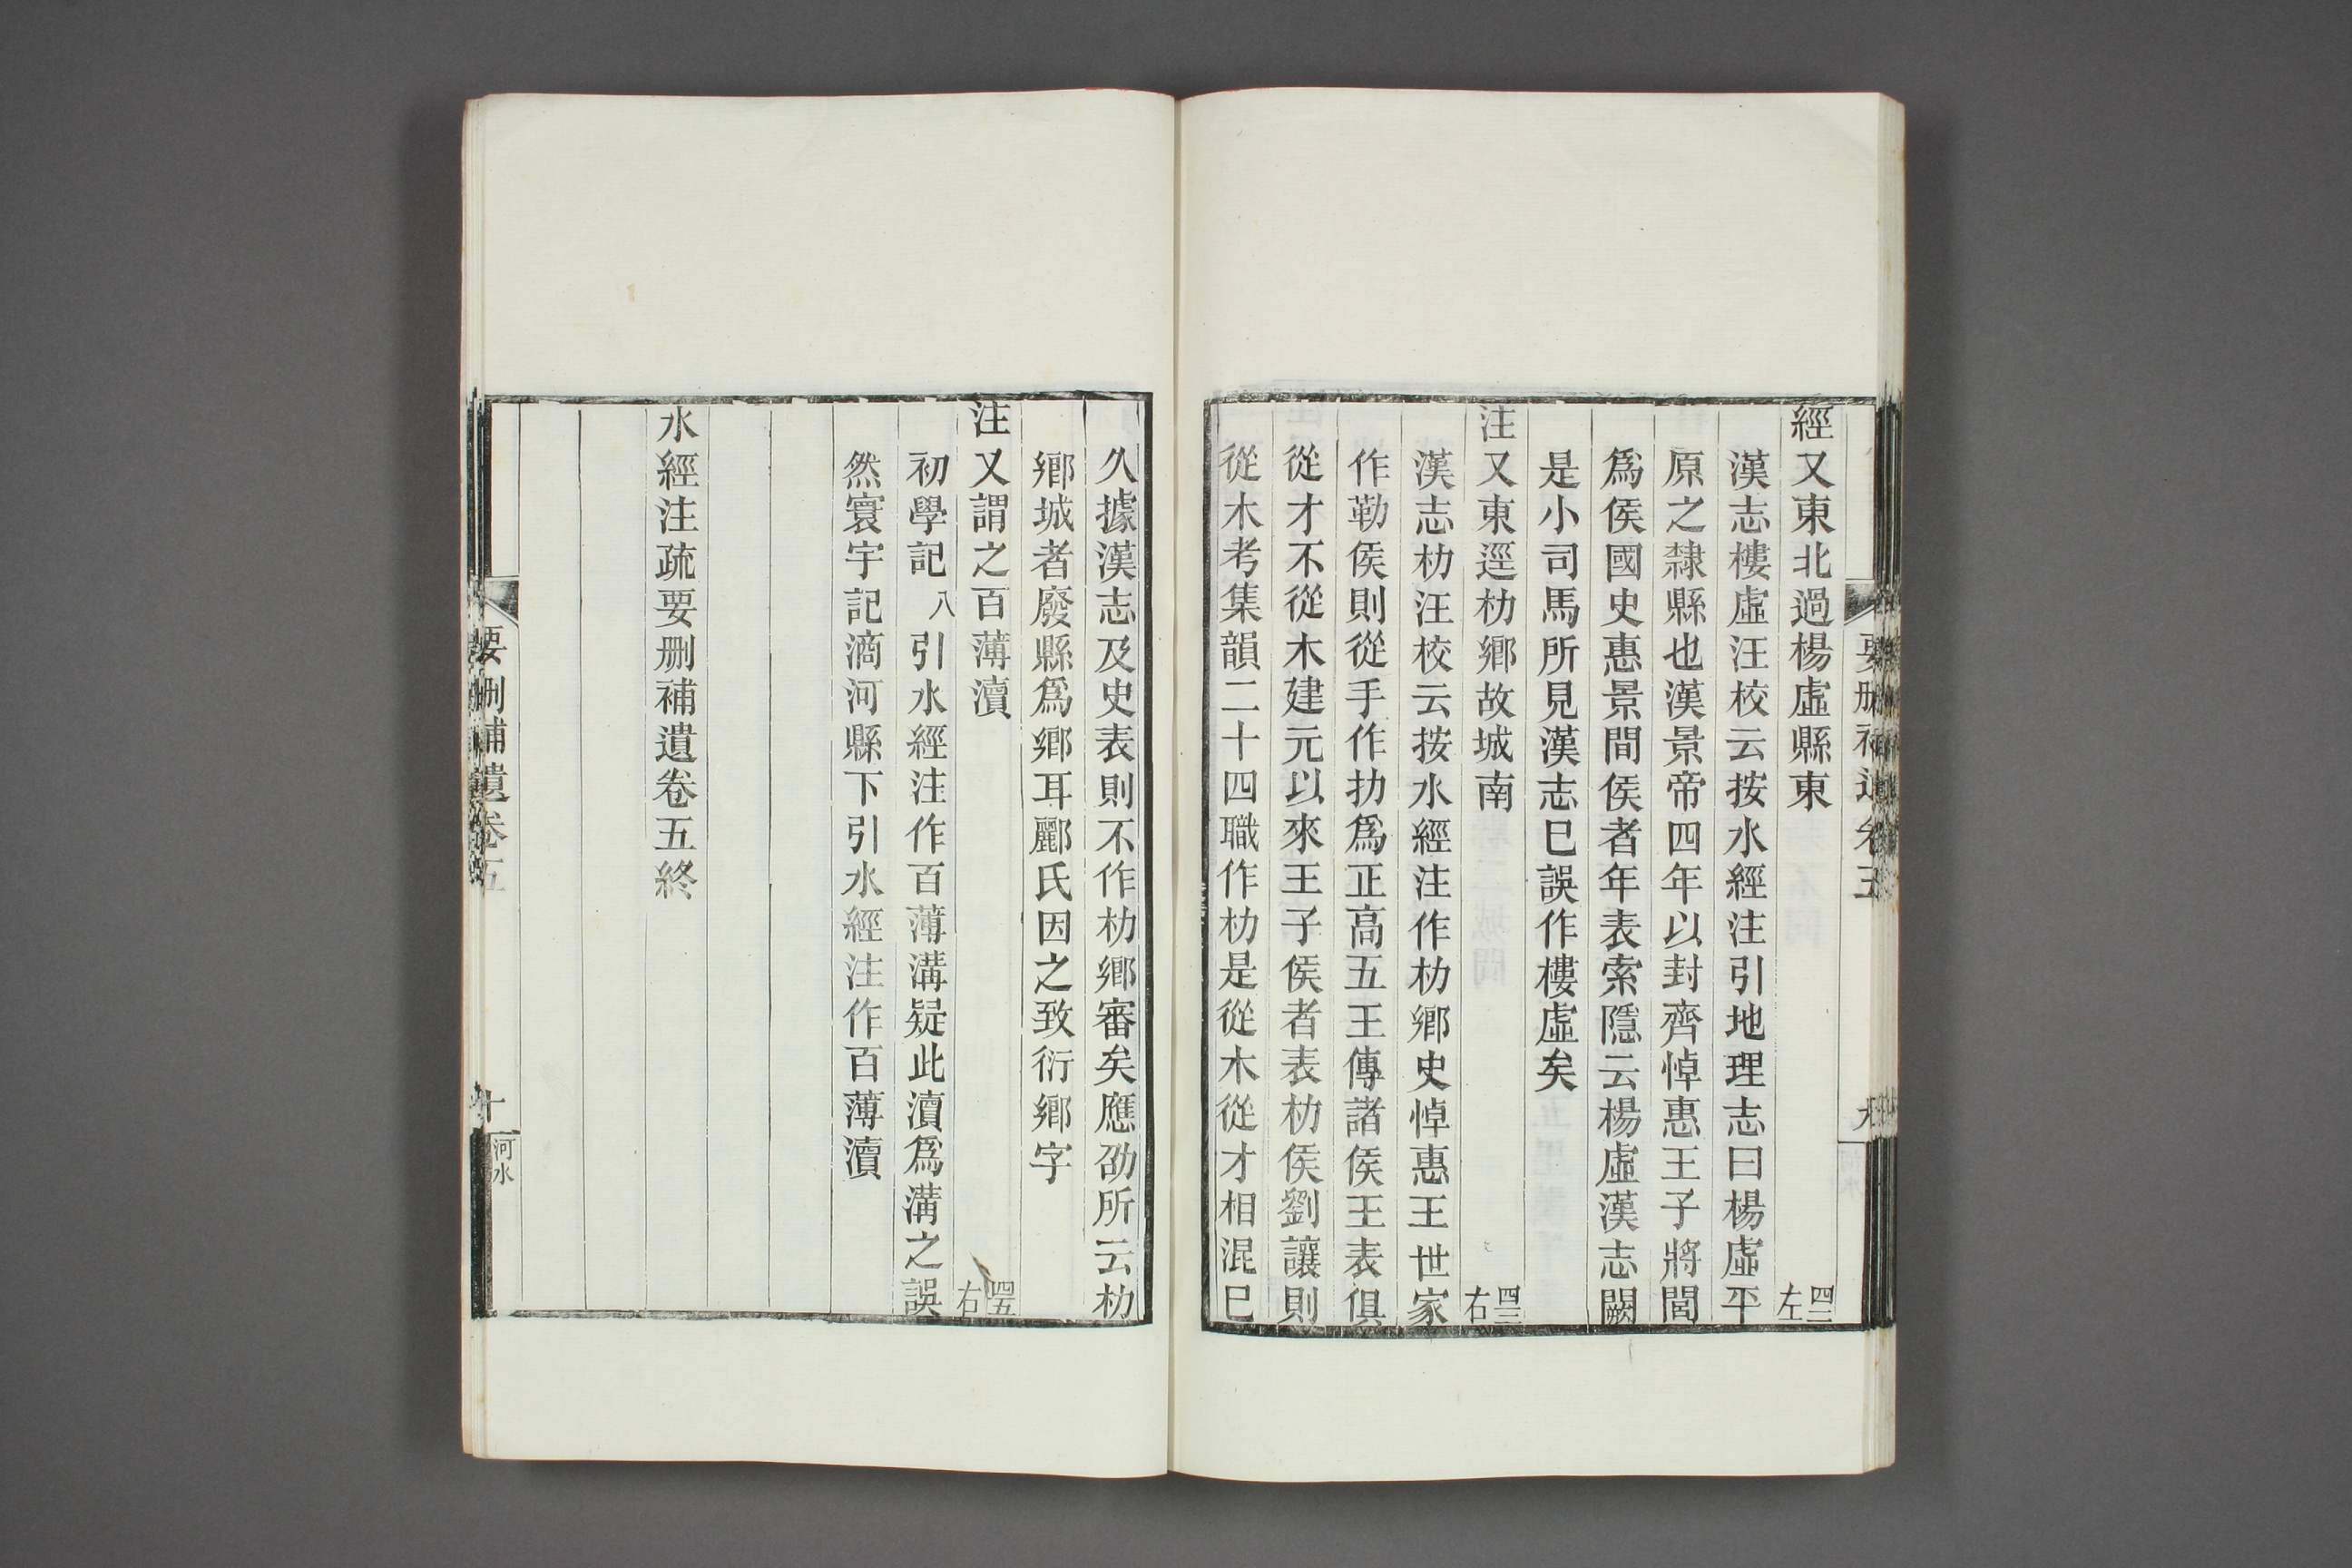 經又東北過楊虛縣東 四二左
漢志樓虛汪校云按水經注引地理志曰楊虛平
原之隸縣也漢景帝四年以封齊悼惠王子將閭
爲侯國史惠景間侯者年表索隱云楊虛漢志闕
是小司馬所見漢志巳誤作樓虛矣
注又東逕朸鄉故城南 四三右
漢志朸汪校云按水經注作朸鄉史悼惠王世家
作勒侯則從手作扐爲正高五王傳諸侯王表俱
從才不從木建元以來王子侯者表朸侯劉讓則
從木考集韻二十四職作朸是從木從才相混巳
久據漢志及史表則不作朸鄉審矣應劭所云朸
鄉城者廢縣爲鄉耳酈氏因之致衍鄉字
注又謂之百薄瀆 四五右
初學記八引水經注作百薄溝疑此瀆爲溝之誤
然寰宇記滴河縣下引水經注作百薄瀆
水經注疏要删補遺卷五終
要删補遺卷五
十
河水